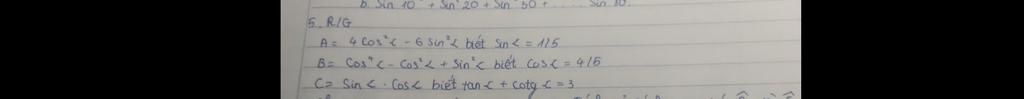 b. Sin 10° + Sin² 20 + Sin² 50 + ..... Sin 80.
5. R/G
A = 4 Cos²α - 6 Sin²α biết Sin α = 1/5
B = Cos⁴α - Cos²α + Sin²α biết Cos α = 4/5
C = Sin α . Cos α biết tan α + cotg α = 3